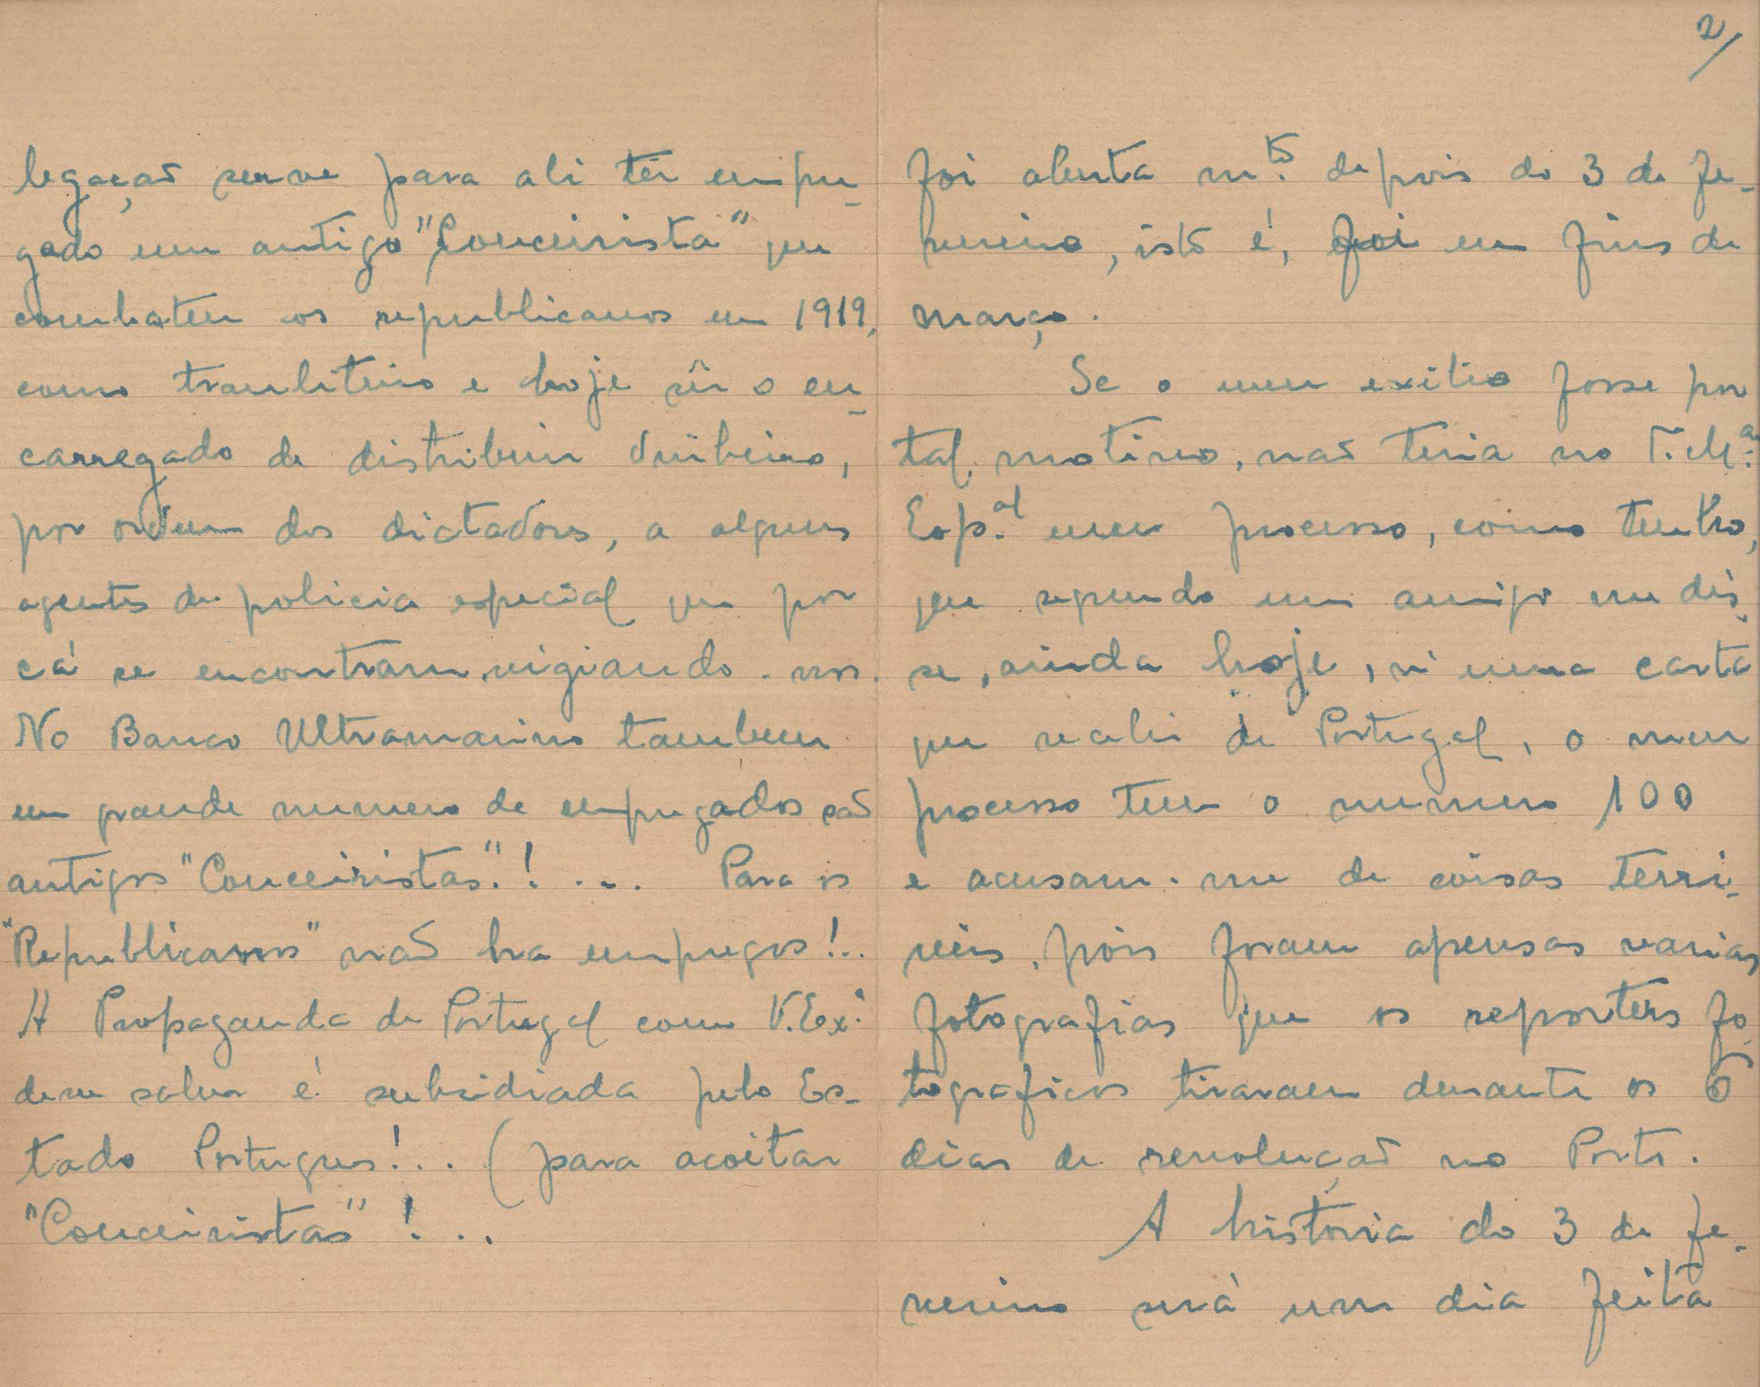 legação serve para ali têr empre-
gado um antigo "Couceirista" que
combateu os republicanos em 1919,
como trauliteiro e hoje é o en-
carregado de distribuir dinheiro,
por ordem dos dictadores, a alguns
agentes da policia especial que por
cá se encontram vigiando-nos.
No Banco Ultramarino tambem
um grande numero de empregados são
antigos "Couceiristas"!... Para os
"Republicanos" não ha empregos!..
A Propaganda de Portugal como V. Ex.ª
deve saber é subsidiada pelo Es-
tado Portugues!.. (para acoitar
"Couceiristas"!..
2/
foi aberta m.to depois do 3 de Fe-
vereiro, isto é, foi em fins de
março.
Se o meu exilio fosse por
tal motivo, não teria no T. M.ar
Esp.al um processo, como tenho,
que segundo um amigo me dis-
se, ainda hoje, n'uma carta
que recebi de Portugal, o meu
processo tem o numero 100
e acusam-me de coisas terri-
veis, pois foram apensas varias
fotografias que os reporters fo-
tograficos tiraram durante os 5
dias de revolução no Porto.
A história do 3 de Fe-
vereiro será um dia feita